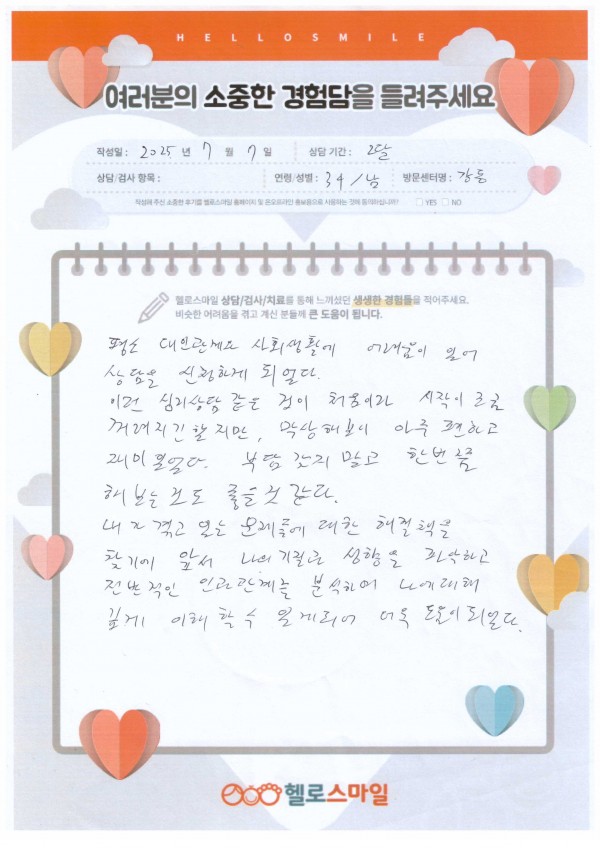 HELLOSMILE
여러분의 소중한 경험담을 들려주세요
작성일 : 2025 년 7 월 7 일 상담 기간 : 2달
상담/검사 항목 : 연령/성별 : 34 / 남 방문센터명 : 강동
작성해 주신 소중한 후기를 헬로스마일 홈페이지 및 온오프라인 홍보용으로 사용하는 것에 동의하십니까? YES NO
헬로스마일 상담/검사/치료를 통해 느끼셨던 생생한 경험들을 적어주세요.
비슷한 어려움을 겪고 계신 분들께 큰 도움이 됩니다.
평소 대인관계와 사회생활에 어려움이 있어
상담을 신청하게 되었다.
이런 심리상담 같은 것이 처음이라 시작이 조금
꺼려지긴 할지만, 막상 해보니 아주 편하고
재미있었다. 부담 갖지 말고 한번쯤
해 보는 것도 좋을 것 같다.
내가 겪고 있는 문제들에 대한 해결책을
찾기에 앞서 나의 기질과 성향을 파악하고
전반적인 인과관계를 분석하여 나에 대해
깊게 이해할 수 있게되어 더욱 도움이 되었다.
헬로스마일